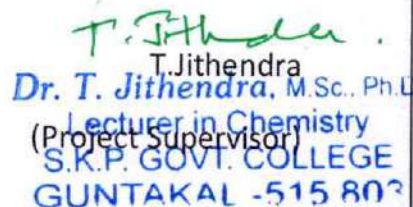 T. Jithendra.
T.Jithendra
Dr. T. Jithendra, M.Sc., Ph.D
Lecturer in Chemistry
(Project Supervisor)
S.K.P. GOVT. COLLEGE
GUNTAKAL -515 803